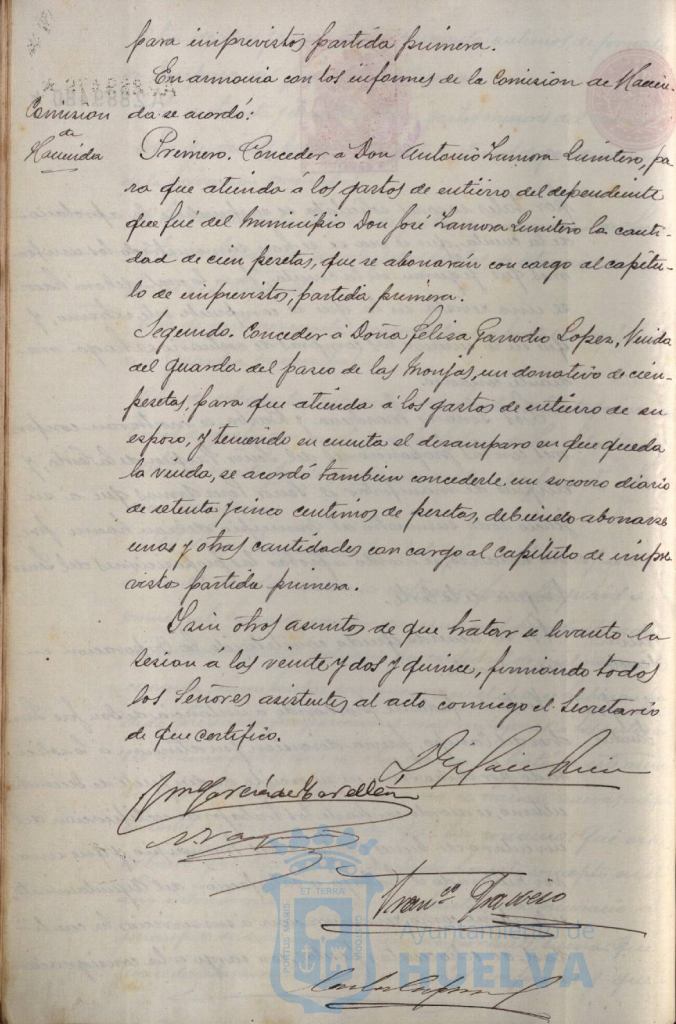 para imprevistos partida primera.
En armonia con los informes de la Comision de Hacien-
Comision
de
Hacienda
da se acordó:
Primero. Conceder á Don Antonio Zamora Quintero, pa
ra que atienda á los gastos de entierro del dependiente
que fué del Municipio Don José Zamora Quintero la canti-
dad de cien pesetas, que se abonarán con cargo al capítu-
lo de imprevistos, partida primera.
Segundo. Conceder á Doña Felisa Garrocho Lopez, Viuda
del guarda del paseo de las Monjas, un donativo de cien
pesetas, para que atienda á los gastos de entierro de su
esposo, y teniendo en cuenta el desamparo en que queda
la viuda, se acordó tambien concederle un socorro diario
de setenta y cinco centimos de pesetas, debiendo abonarse
unas y otras cantidades con cargo al capítulo de impre
vistos partida primera.
Y sin otros asuntos de que tratar se levantó la
sesion á las veinte y dos y quince, firmando todos
los Señores asistentes al acto conmigo el Secretario
de que certifico.
Franco
ET TERRA
PORTUS MARIS
CUSTODIA
Ayuntamiento de
HUELVA